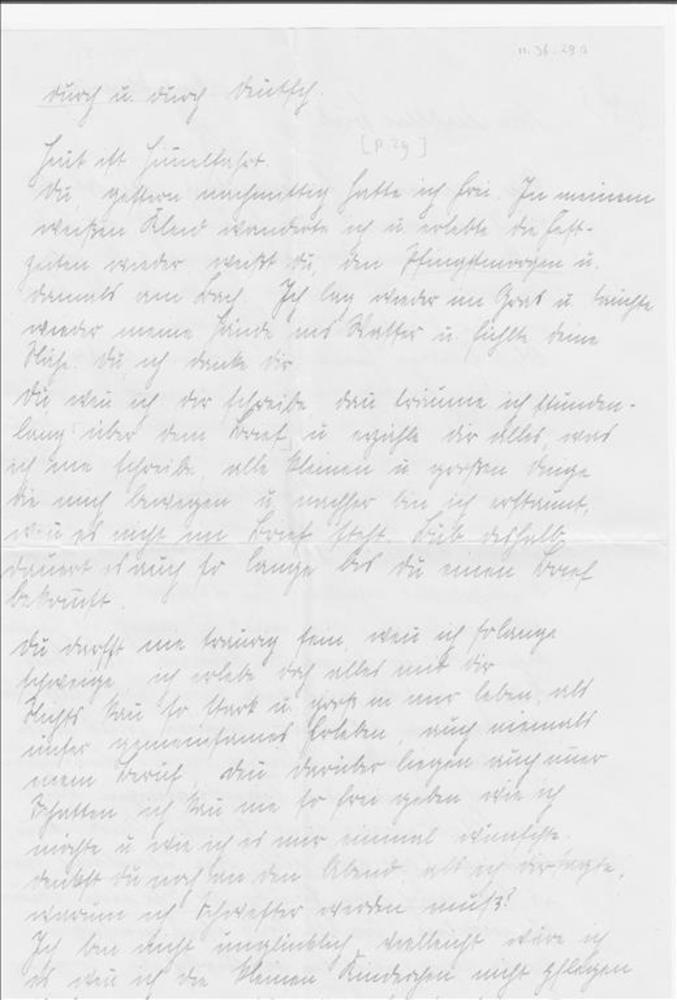 11.36.29a
durch u. durch deutsch.
[p.29]
Heut ist Himmelfahrt.
Du, gestern nachmittag hatte ich frei. In meinem
weißen Kleid wanderte ich u. erlebte die Fest-
zeiten wieder, weißt du, den Pfingstmorgen u.
damals am Bach. Ich lag wieder im Gras u. tauchte
wieder meine Hände ins Wasser u. fühlte deine
Nähe. Du, ich danke dir.
Du, wen̄ ich dir schreibe dan̄ träume ich stunden-
lang über dem Brief u. erzähle dir alles, was
ich nie schreibe, alle kleinen u. großen Dinge
die mich bewegen u. nachher bin ich erstaunt,
wen̄ es nicht im Brief steht. Bub deshalb
dauert es auch so lange bis du einen Brief
bekom̄st.
Du darfst nie traurig sein, wen̄ ich so lange
schweige, ich erlebe doch alles mit dir
Nichts kan̄ so stark u. groß in mir leben, als
unser gemeinsames Erleben, auch niemals
mein Beruf, den̄ darüber liegen auch im̄er
Schatten, ich kan̄ nie so frei geben wie ich
möchte u. wie ich es mir einmal wünschte.
denkst du noch an den Abend, als ich dir sagte,
warum ich Schwester werden muß?
Ich bin nicht unglücklich, vielleicht wäre ich
es wen̄ ich die kleinen Kinderchen nicht pflegen